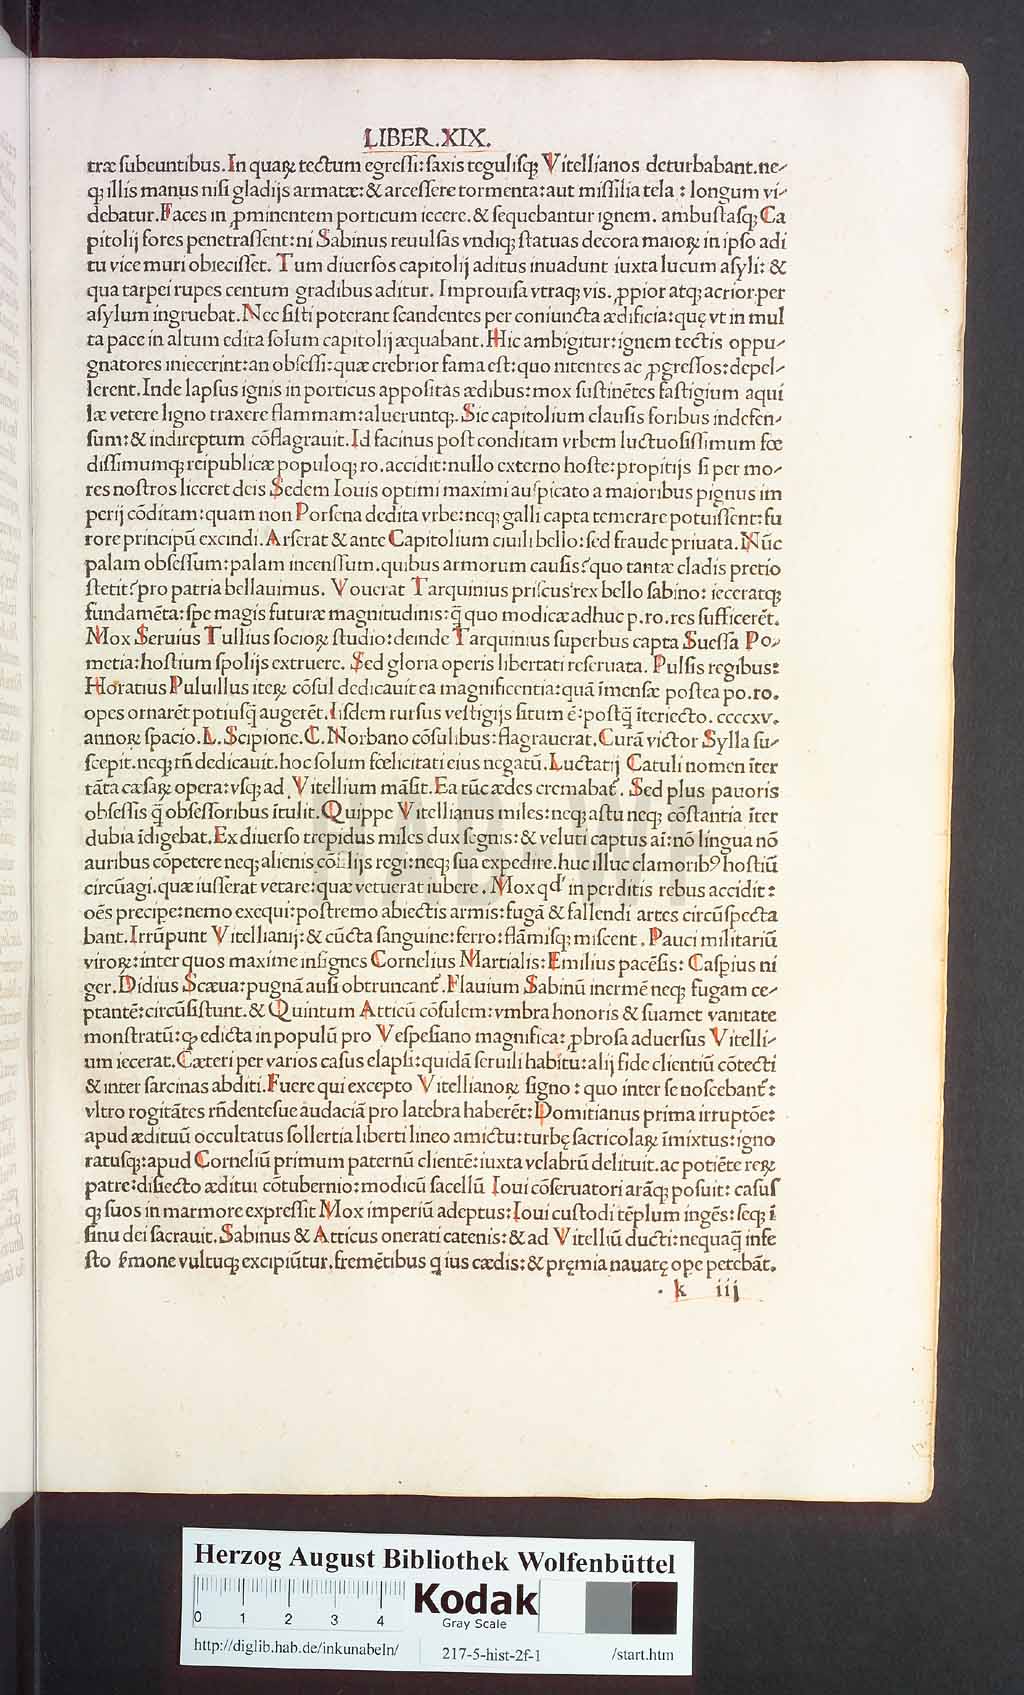 LIBER.XIX.
træ subeuntibus.In quaꝝ tectum egressi:saxis tegulisqꝫ Vitellianos deturbabant.ne-
qꝫ illis manus nisi gladijs armatæ:& arcessere tormenta:aut missilia tela : longum vi-
debatur.Faces in ꝓminentem porticum iecere.& sequebantur ignem. ambustasqꝫ Ca
pitolij fores penetrassent:ni Sabinus reuulsas vndiqꝫ statuas decora maioꝝ in ipso adi
tu vice muri obiecisset. Tum diuersos capitolij aditus inuadunt iuxta lucum asyli: &
qua tarpei rupes centum gradibus aditur. Improuisa vtraqꝫ vis. ꝓpior atqꝫ acrior.per
asylum ingruebat.Nec sisti poterant scandentes per coniuncta ædificia:quę vt in mul
ta pace in altum edita solum capitolij æquabant. Hic ambigitur:ignem tectis oppu-
gnatores iniecerint:an obsessi:quæ crebrior fama est:quo nitentes ac ꝓgressos:depel-
lerent.Inde lapsus ignis in porticus appositas ædibus:mox sustinētes fastigium aqui
læ vetere ligno traxere flammam:alueruntqꝫ.Sic capitolium clausis foribus indefen-
sum:& indireptum cōflagrauit.Id facinus post conditam vrbem luctuosissimum fœ
dissimumqꝫ reipublicæ populoqꝫ ro.accidit:nullo externo hoste:propitijs si per mo-
res nostros liceret deis Sedem Iouis optimi maximi auspicato a maioribus pignus im
perij cōditam:quam non Porsena dedita vrbe:neqꝫ galli capta temerare potuissent:fu
rore principū excindi.Arserat & ante Capitolium ciuili bello:sed fraude priuata.Nūc
palam obsessum:palam incenssum.quibus armorum causis?quo tantæ cladis pretio
stetit?pro patria bellauimus. Vouerat Tarquinius priscus rex bello sabino: ieceratqꝫ
fundamēta:spe magis futuræ magnitudinis:q̄ quo modicæ adhuc p.ro.res sufficerēt.
Mox Seruius Tullius socioꝝ studio:deinde Tarquinius superbus capta Suessa Po-
metia:hostium spolijs extruere. Sed gloria operis libertati reseruata. Pulsis regibus:
Horatius Puluillus iteꝝ cōsul dedicauit ea magnificentia:quā īmensæ postea po.ro.
opes ornarēt potiusq̄ augerēt.Iisdem rursus vestigijs situm ē:postq̄ īteriecto.ccccxv.
annoꝝ spacio.L.Scipione.C.Norbano cōsulibus:flagrauerat.Curā victor Sylla su-
scepit.neqꝫ tn̄ dedicauit.hoc solum fœlicitati eius negatū.Luctatij Catuli nomen īter
tāta cæsaꝝ opera:vsqꝫ ad Vitellium māsit.Ea tūc ædes cremabat̄. Sed plus pauoris
obsessis q̄ obsessoribus ītulit.Quippe Vitellianus miles:neqꝫ astu neqꝫ cōstantia īter
dubia īdigebat.Ex diuerso trepidus miles dux segnis:& veluti captus aī:nō lingua nō
auribus cōpetere neqꝫ alienis cōsilijs regi:neqꝫ sua expedire.huc illuc clamoribꝰ hostiū
circūagi.quæ iusserat vetare:quæ vetuerat iubere. Mox qđ in perditis rebus accidit:
oēs precipe:nemo exequi:postremo abiectis armis:fugā & fallendi artes circūspecta
bant.Irrūpunt Vitellianij:& cūcta sanguine:ferro:flāmisqꝫ miscent. Pauci militariū
viroꝝ:inter quos maxime insignes Cornelius Martialis:Emilius pacēsis: Caspius ni
ger.Didius Scæua:pugnā ausi obtruncant̄.Flauium Sabinū inermē neqꝫ fugam ce-
ptantē:circūsistunt.& Quintum Atticū cōsulem:vmbra honoris & suamet vanitate
monstratū:qꝫ edicta in populū pro Vespesiano magnifica:ꝓbrosa aduersus Vitelli-
um iecerat.Cæteri per varios casus elapsi:quidā seruili habitu:alij fide clientiū cōtecti
& inter sarcinas abditi.Fuere qui excepto Vitellianoꝝ signo : quo inter se noscebant̄:
vltro rogitātes rn̄dentesue audaciā pro latebra haberēt:Domitianus prima irruptōe:
apud ædituū occultatus sollertia liberti lineo amictu:turbę sacricolaꝝ īmixtus:igno
ratusqꝫ:apud Corneliū primum paternū clientē:iuxta velabrū delituit.ac potiēte reꝝ
patre:disiecto æditui cōtubernio:modicū sacellū Ioui cōseruatori arāqꝫ posuit: casus
qꝫ suos in marmore expressit Mox imperiū adeptus:Ioui custodi tēplum ingēs:seqꝫ ī
sinu dei sacrauit.Sabinus & Atticus onerati catenis:& ad Vitelliū ducti:nequaq̄ infe
sto s̄mone vultuqꝫ excipiūtur.fremētibus q ius cædis:& pręmia nauatę ope petebāt.
. k iij
HAB WF
Herzog August Bibliothek Wolfenbüttel
0 1 2 3 4
Kodak
Gray Scale
http://diglib.hab.de/inkunabeln/ 217-5-hist-2f-1 /start.htm